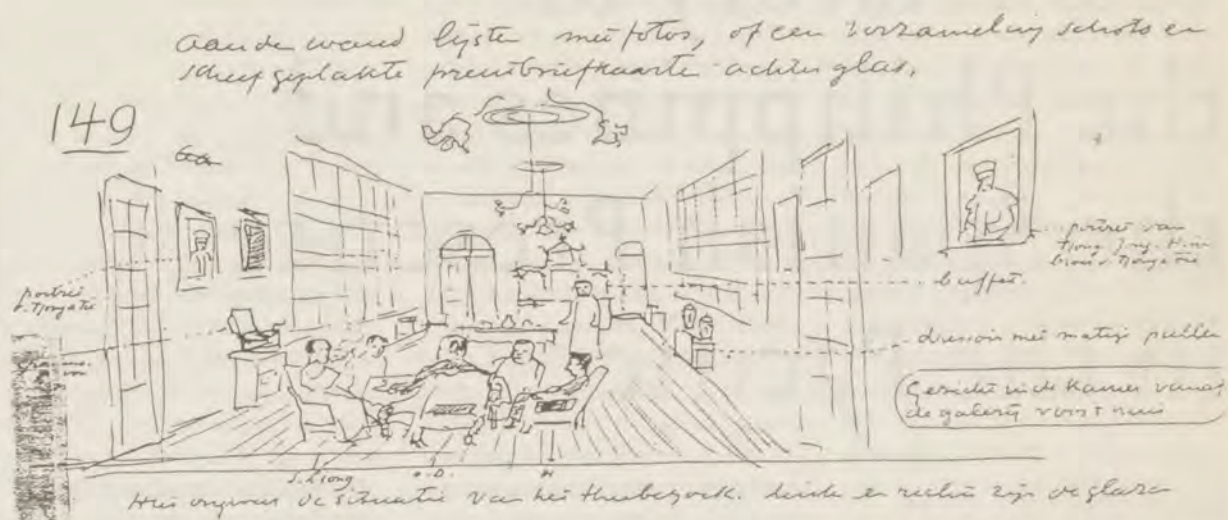 aan de wand lijsten met fotos, of een verzameling schots en
scheef geplakte prentbriefkaarten achter glas.
149
portret
portret van
Tjong
buffet.
dressoir met matige prullen
Gezicht in de Kamer vanaf
de galerij voor 't huis
S. Liong
o.D.
H
de situatie van het theebezoek. links en rechts zijn de glazen